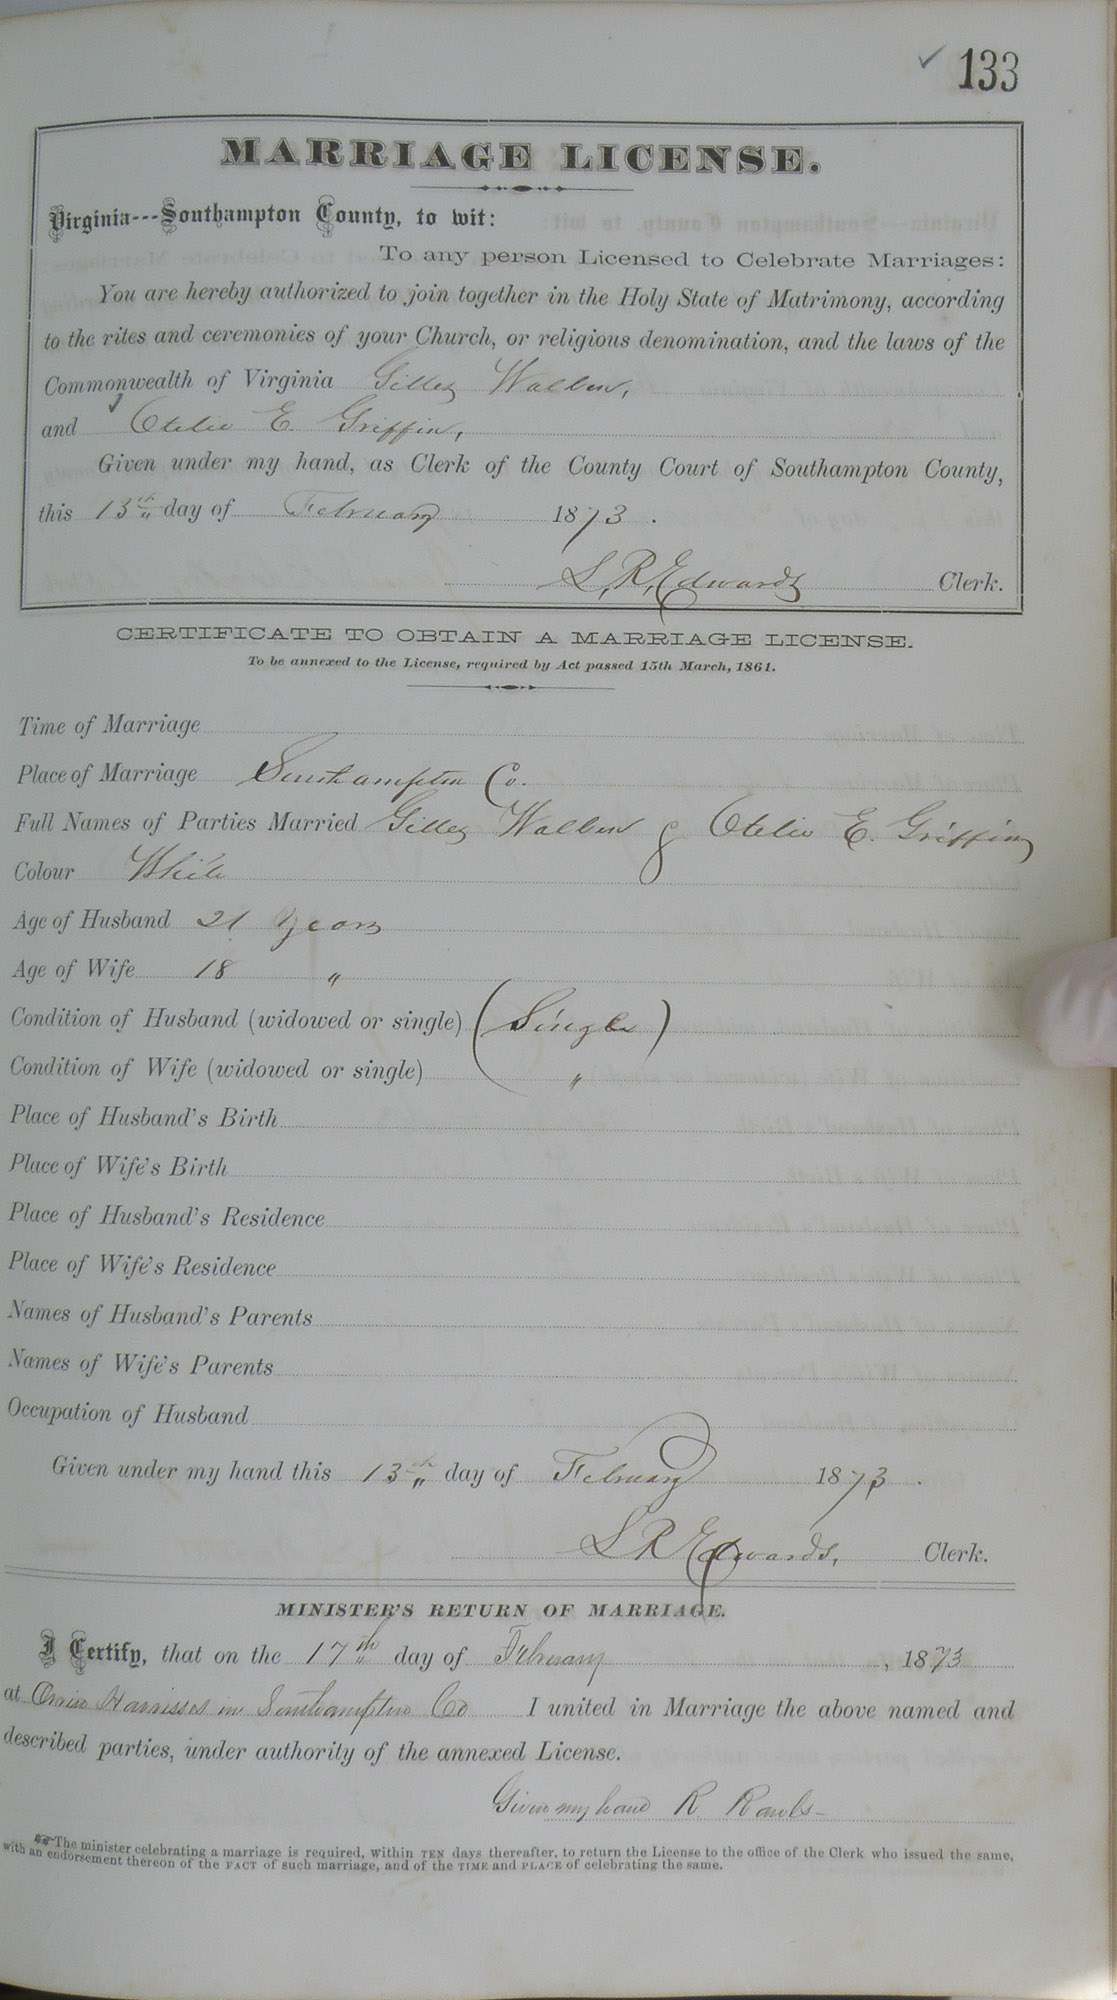 133
MARRIAGE LICENSE.
Virginia---Southampton County, to wit:
To any person Licensed to Celebrate Marriages:
You are hereby authorized to join together in the Holy State of Matrimony, according
to the rites and ceremonies of your Church, or religious denomination, and the laws of the
Commonwealth of Virginia
and Otelia E. Griffin,
Given under my hand, as Clerk of the County Court of Southampton County,
this 13th day of February 1873.
L. R. Edwards Clerk.
CERTIFICATE TO OBTAIN A MARRIAGE LICENSE.
To be annexed to the License, required by Act passed 15th March, 1861.
Time of Marriage
Place of Marriage Southampton Co.
Full Names of Parties Married & Otelia E. Griffin
Colour White
Age of Husband 21 Years
Age of Wife 18 "
Condition of Husband (widowed or single) (Single)
Condition of Wife (widowed or single) "
Place of Husband's Birth
Place of Wife's Birth
Place of Husband's Residence
Place of Wife's Residence
Names of Husband's Parents
Names of Wife's Parents
Occupation of Husband
Given under my hand this 13th day of February 1873.
L R Edwards, Clerk.
MINISTER'S RETURN OF MARRIAGE.
I Certify, that on the 17th day of February, 1873
at in Southampton Co I united in Marriage the above named and
described parties, under authority of the annexed License.
Given my hand R Rawls
The minister celebrating a marriage is required, within TEN days thereafter, to return the License to the office of the Clerk who issued the same,
with an endorsement thereon of the FACT of such marriage, and of the TIME and PLACE of celebrating the same.